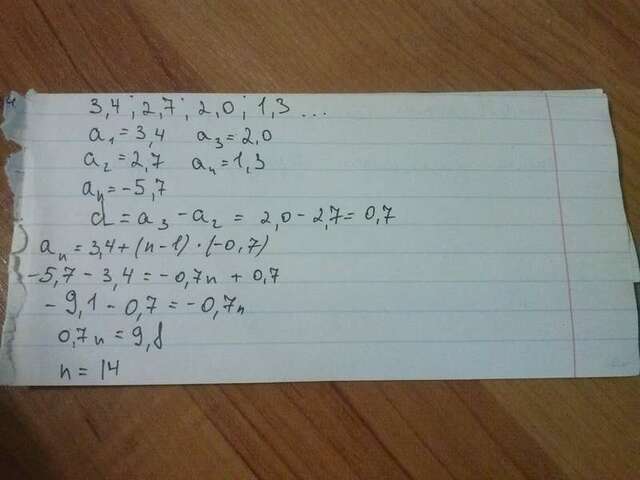 3,4; 2,7; 2,0; 1,3 ...
a₁ = 3,4 a₃ = 2,0
a₂ = 2,7 a₄ = 1,3
aₙ = -5,7
d = a₃ - a₂ = 2,0 - 2,7 = 0,7
aₙ = 3,4 + (n-1) · (-0,7)
-5,7 - 3,4 = -0,7n + 0,7
-9,1 - 0,7 = -0,7n
0,7n = 9,8
n = 14